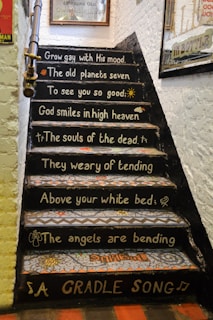 Grow gay with His mood.
The old planets seven
To see you so good;
God smiles in high heaven
The souls of the dead.
They weary of tending
Above your white bed;
The angels are bending
A CRADLE SONG